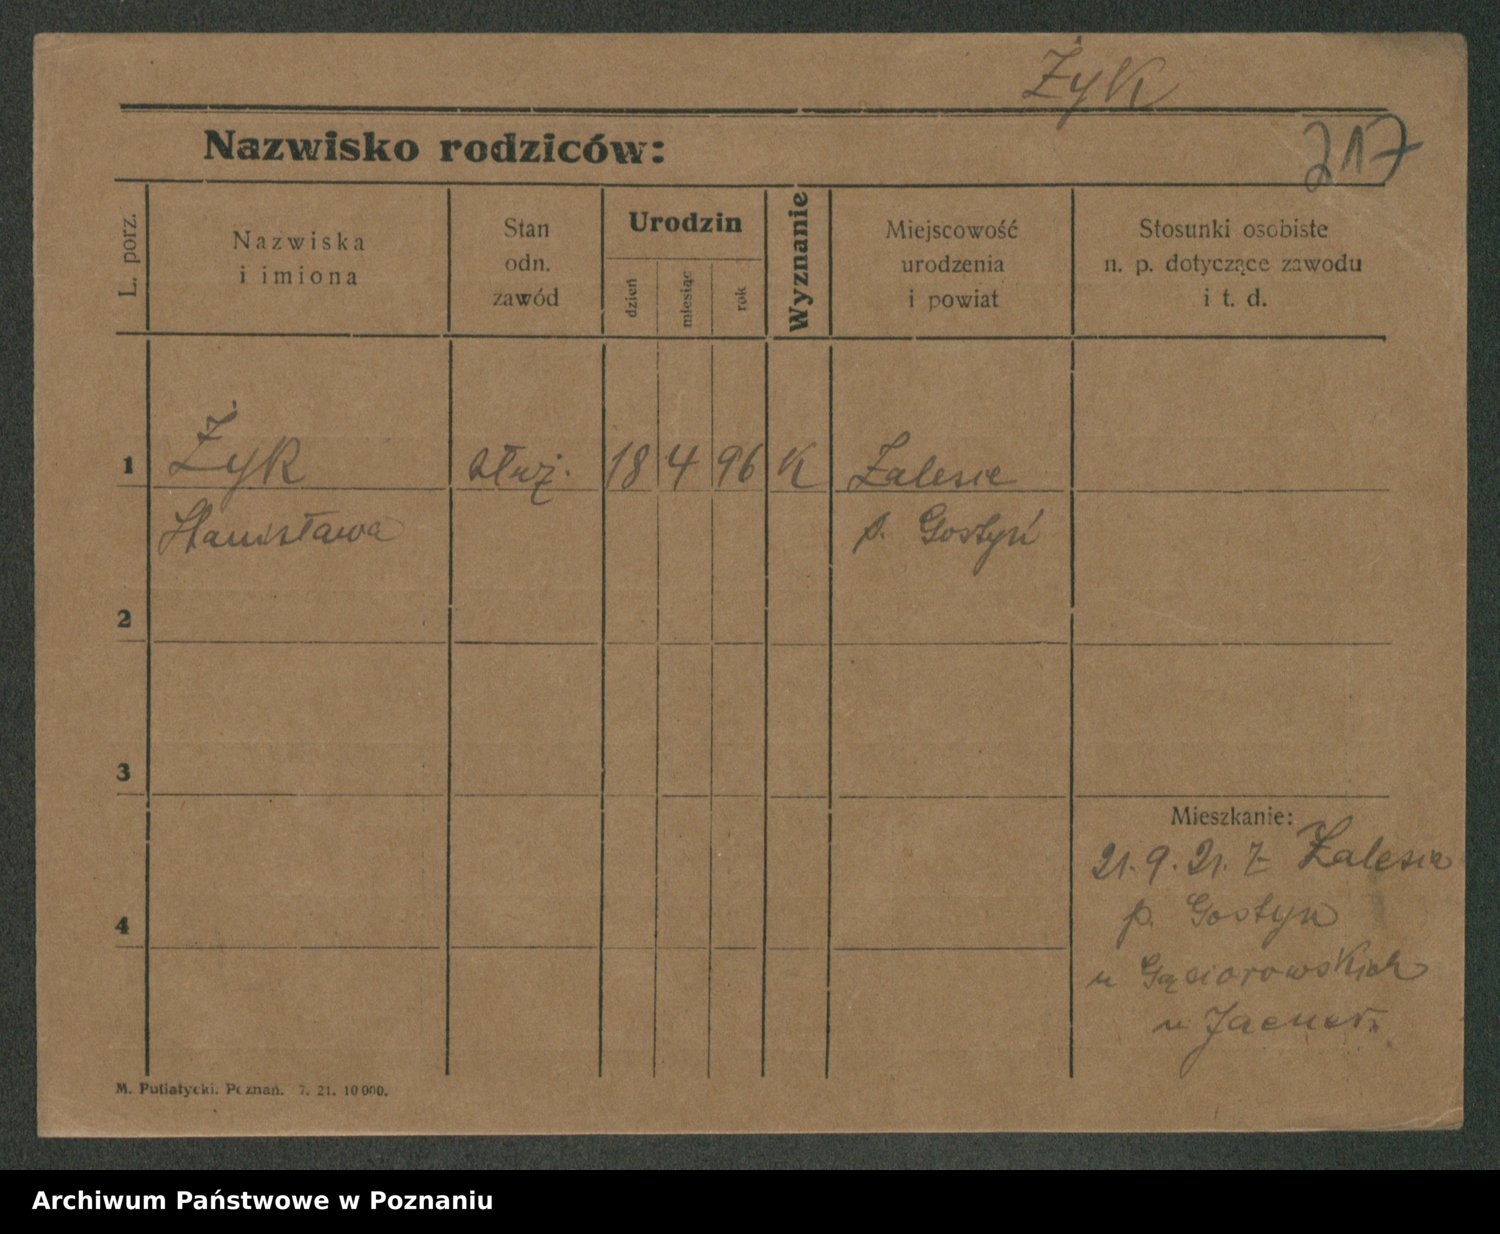 Żyk
217
Nazwisko rodziców:
L. porz.
Nazwiska
i imiona
Stan
odn.
zawód
Urodzin
dzień
miesiąc
rok
Wyznanie
Miejscowość
urodzenia
i powiat
Stosunki osobiste
n. p. dotyczące zawodu
i t. d.
1 Żyk służ. 18 4 96 K Zalesie
Stanisława p. Gostyń
2
3
Mieszkanie:
21. 9. 21. z Zalesia
p. Gostyn
4
u Gąsiorowskich
u
M. Putiatycki. Poznań. 7. 21. 10000.
Archiwum Państwowe w Poznaniu